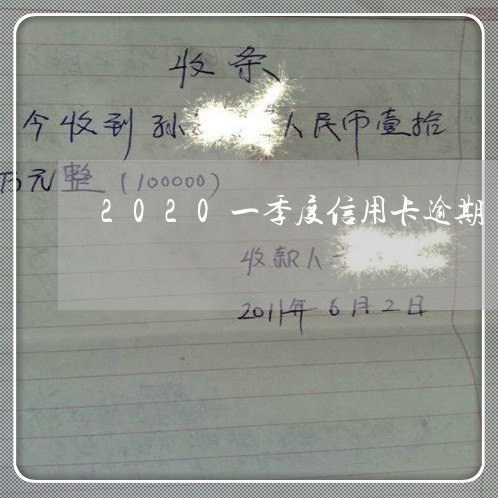 收条
今收到孙 人民币壹拾
万元整（100000）
2020一季度信用卡逾期
收款人
2011年6月2日